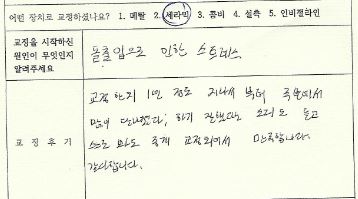 어떤 장치로 교정하셨나요? 1. 메탈 2. 세라믹 3. 콤비 4. 설측 5. 인비절라인
교정을 시작하신
원인이 무엇인지
알려주세요
돌출입으로 인한 스트레스
교정한지 1년 정도 지나서 부터 주변에서
많이 달라졌다, 하기 잘했다는 소리도 듣고
스스로 봐도 좋게 교정되어서 만족합니다.
감사합니다.
교정후기